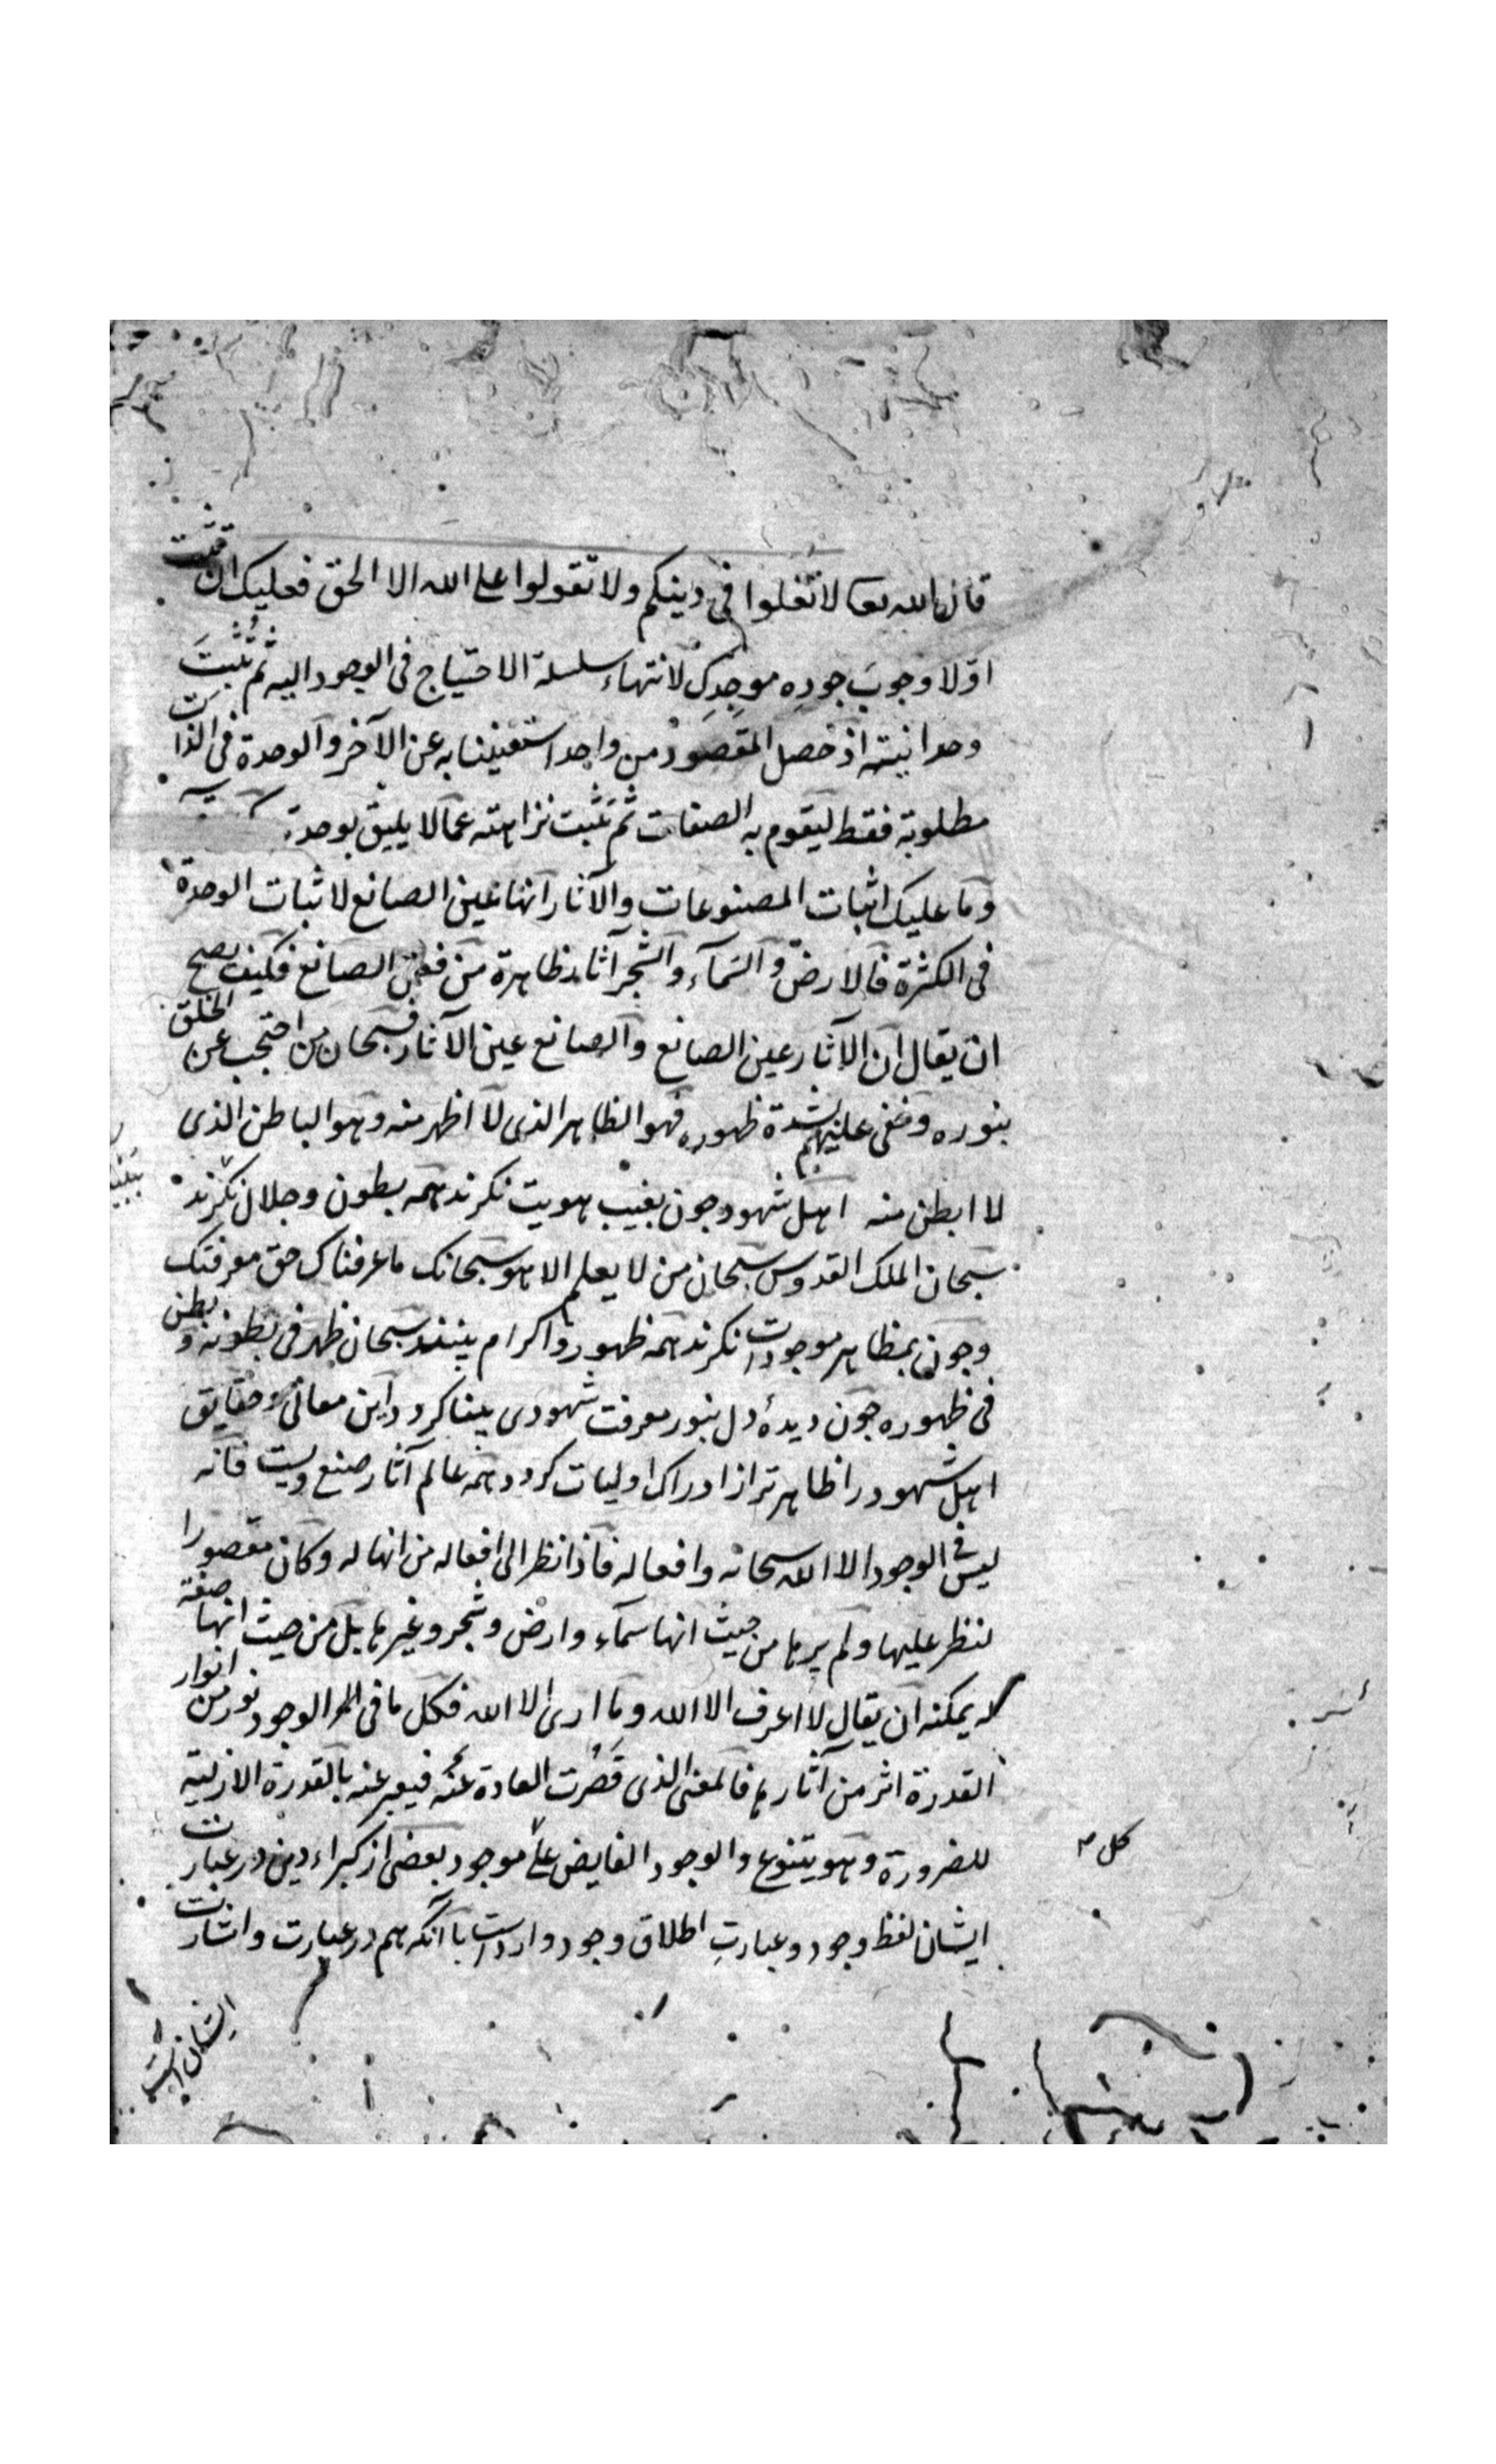 قال الله تعا لا تغلوا فی دینکم ولا تقولوا علی الله الا الحق فعلیک ان تثبت
اوّلا وجوبَ جودِه موجِدِک لانتهاء سلسلة الاحتیاج فی الوجود الیه ثم تُثبتَ
وحدانیته اذ حصل المقصود من واحد استغنینا به عن الآخر والوحدة فی الذات
مطلوبة فقط لیقوم به الصفات ثم تثبت نزاهته عمالا یلیق بوحدته
وما علیک اثبات المصنوعات والآثار انها عین الصانع لاثبات الوحدة
فی الکثرة فالارض والسّمآء والشجر آثار ظاهرة من فعل الصانع فکیف یصح
ان یقال ان الآثار عین الصانع والصانع عین الآثار فسبحان من احتجب عن الخلق
بنوره وخفی علیهم بشدة ظهوره فهو الظاهر الذی لا اظهر منه وهو الباطن الذی
لا ابطن منه اهل شهود چون بغیب هویت نکرند همه بطون وجلال نکرند
سبحان الملک القدوس سبحان من لا یعلم الا هو سبحانک ما عرفناک حق معرفتک
وچون بمظاهر موجودات نکرند همه ظهور واکرام بینند سبحان ظهر فی بطونه و بطن
فی ظهوره چون دیدهٔ دل بنور معرفت شهودی بینا کردد این معانی و حقایق
اهل شهود را ظاهرتر از ادراک اولیات کردد همه عالم آثار صنع ویست فانه
لیس فی الوجود الا الله سبحانه وافعاله فاذا نظر الی افعاله من انها له وکان مقصورا
لنظر علیها ولم یرها من حیث انها سمآء وارض وشجر وغیرها بل من حیث انها صفته
لا یمکنه ان یقال لا اعرف الا الله وما اری الا الله فکل ما فی الوجود نور من انوار
القدرة اثر من آثارها فالمعنی الذی قصُرت العادة عنه فیعبر عنه بالقدرة الازلیة
للضرورة وهو یتنوع والوجود الفایض علی موجود بعضی از کبراء دین در عبارت
کل
ایشان لفظ وجود وعبارتِ اطلاق وجود وارد است با آنکه هم در عبارت واشارت
ایشان است